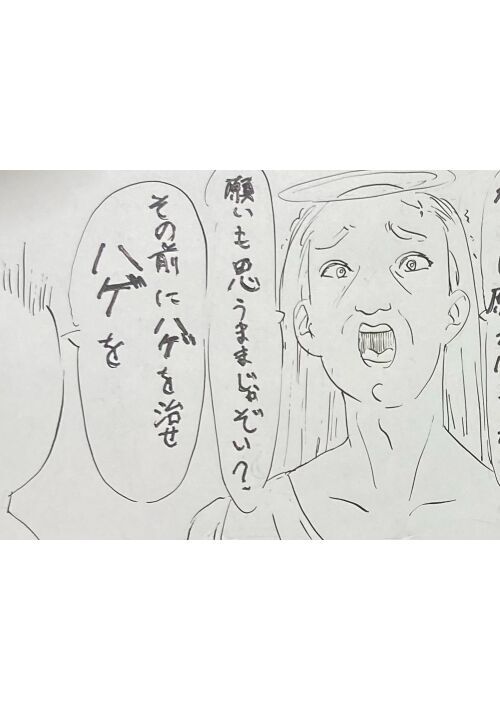 願いも思うままじゃぞい?
その前にハゲを治せ
ハゲを